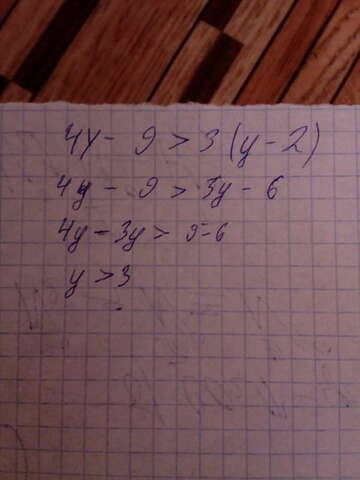 4y - 9 > 3(y - 2)
4y - 9 > 3y - 6
4y - 3y > 9 - 6
y > 3